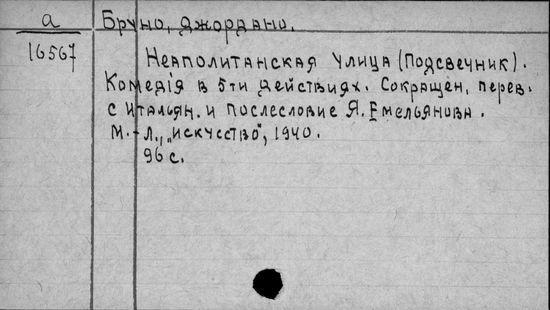 а
16567
Бруно, Джордано.
Неаполитанская улица (Подсвечник).
Комедія в 5ти действиях. Сокращен. перев.
с итальян. и послесловие Я. Емельянова.
М.-Л., "Искусство", 1940.
96 с.